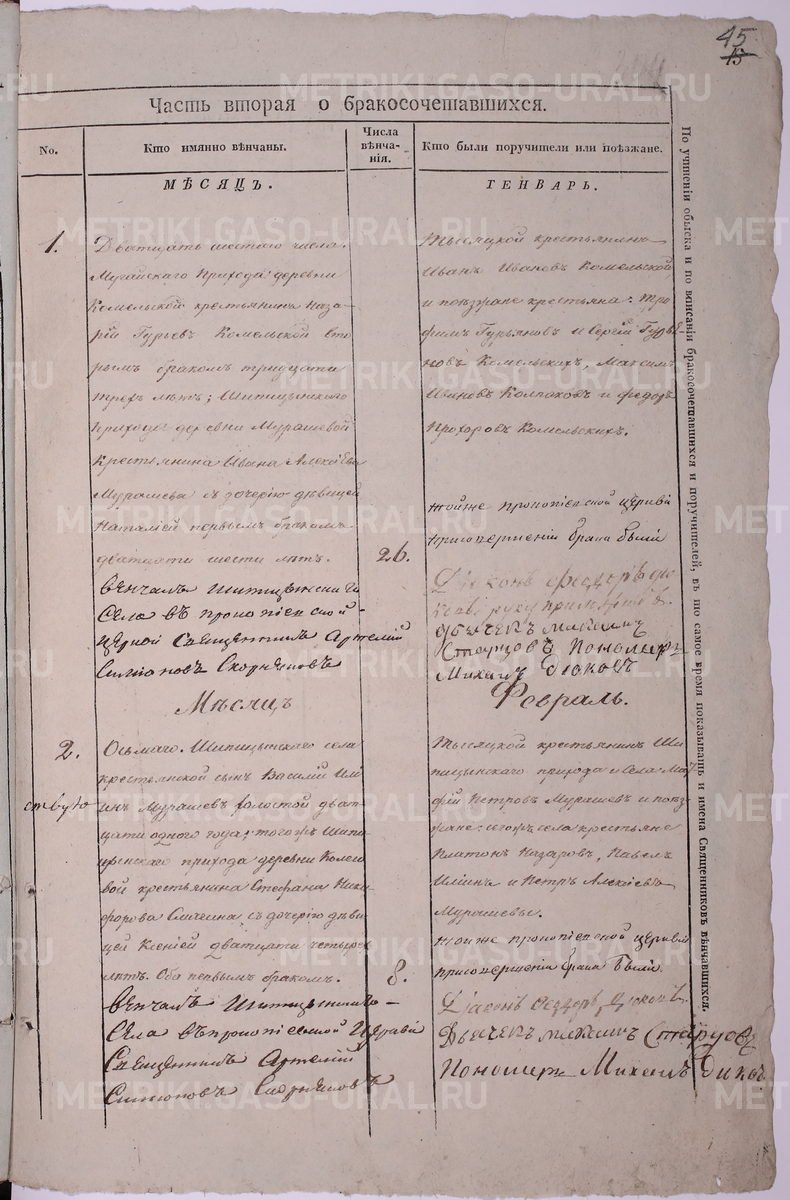 45
13
Часть вторая о бракосочетавшихся.
No.
Кто имянно вѣнчаны.
Числа
вѣнча-
нія.
Кто были поручители или поѣзжане.
МѢСЯЦЪ.
ГЕНВАРЬ.
1.
Дватцать шестаго числа.
Мугайскаго Прихода деревни
Комельской крестьянинъ Наза-
рій Гурьевъ Комельской вто
рымъ бракомъ тридцати
трехъ лѣтъ; Шипицынскаго
прихода деревни Мурашевой
крестьянина Ивана Алексіева
Мурашева съ дочерію дѣвицей
Наталіей первымъ бракомъ
дватцати шести лѣтъ.
26.
Венчалъ Шипицынскаго
Села въ прокопіевской
церкви Священникъ Артемій
Симіоновъ
Тысяцкой крестьянинъ
Иванъ Ивановъ Комельской
и поѣзжане крестьяна: Тро
фимъ Гурьяновъ и Сергій Гурья-
новъ Комельскихъ, Максимъ
Ивановъ Колпаковъ и Федоръ
Прохоровъ Комельскихъ.
тойже прокопіевской церкви
присовершеніи брака были
Діаконъ Федоръ
руку приложилъ.
дьячекъ
Старцовъ Пономарь
Михаилъ
Мѣсяцъ
Февраль.
2.
Осьмаго. Шипицынскаго села
крестьянской сынъ Василій Иль
инъ Мурашевъ холостой дват
цати одного года; тогожъ Шипи
цынскаго прихода деревни
вой крестьянина Стефана Ники
форова съ дочерію дѣви
цей Ксеніей дватцати четырехъ
лѣтъ. Оба первымъ бракомъ.
8.
Венчалъ Шипицынскаго
Села въ прокопіевской Церкви
Священникъ Артемій
Симіоновъ
Тысяцкой крестьянинъ Ши
пицынскаго прихода и Села
Петровъ Мурашевъ и поѣз
жане: тогожъ села крестьяне
Платонъ Назаровъ, Павелъ
Ильинъ и Петръ Алексіевъ
Мурашевы.
тойже прокопіевской церкви
присовершеніи брака были
Діаконъ Федоръ
Дьячекъ Старцовъ
Пономарь Михаилъ
По учиненіи обыска и по вписаніи бракосочетавшихся и поручителей, въ то самое время показывать и имена Священниковъ вѣнчавшихся.
METRIKI.GASO-URAL.RU